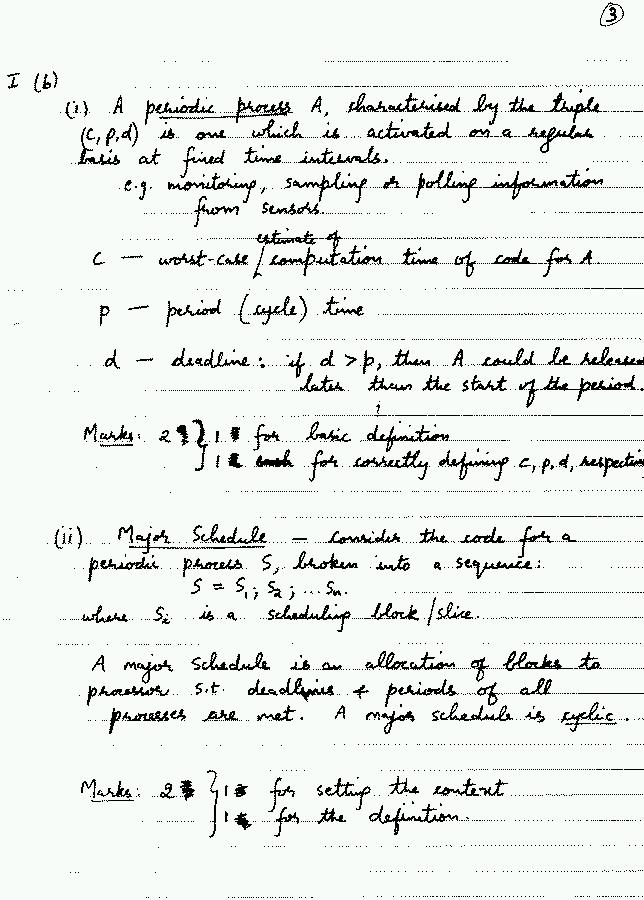 3
I (b)
(i) A periodic process A, characterised by the triple
(C, p, d) is one which is activated on a regular
basis at fixed time intervals.
e.g. monitoring, sampling or polling information
from sensors.
estimate of
C — worst-case / computation time of code for A
p — period (cycle) time
d — deadline: if d > p, then A could be released
later than the start of the period.
Marks: 2 } 1 for basic definition
1 for correctly defining C, p, d,
(ii) Major Schedule — consider the code for a
periodic process S, broken into a sequence:
S = S1; S2; ... Sn.
where Si is a scheduling block/slice.
A major schedule is an allocation of blocks to
processor s.t. deadlines & periods of all
processes are met. A major schedule is cyclic.
Marks: 2 } 1 for setting the context
1 for the definition.